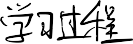 学习过程